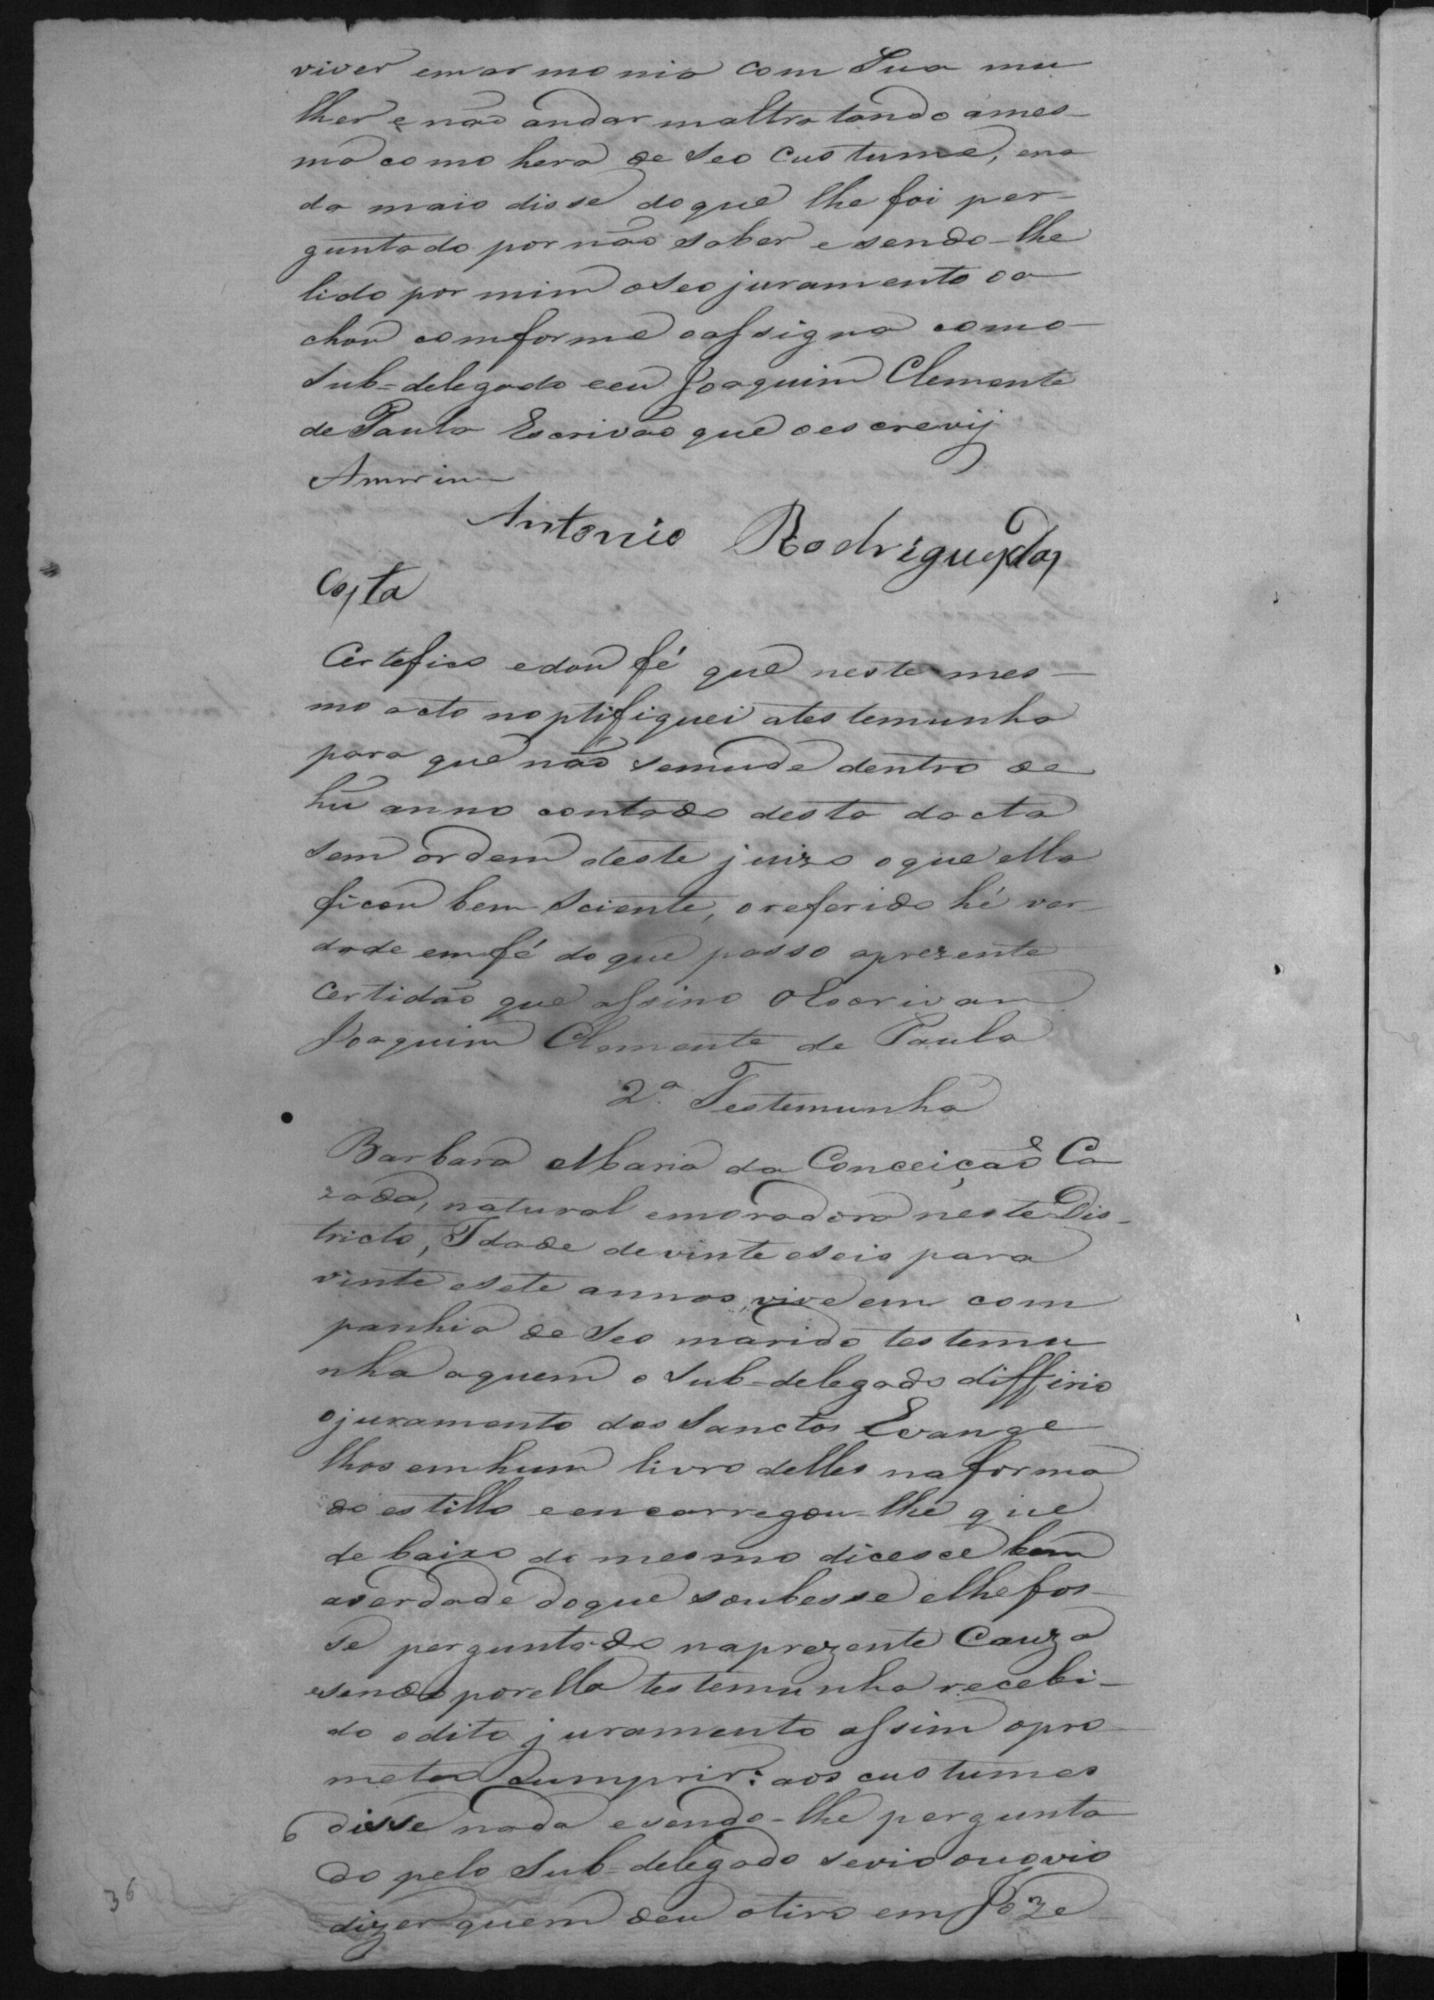 viver em armonia com Sua mu
lher e não andar maltratando ames-
ma como hera de Seo Custume, ena
da mais disse doque lhe foi per-
guntado por não saber e sendo-lhe
lido por mim oSeo juramento oa
chou comforme eassigna como
Sub-delegado eeu Joaquim Clemente
de Paula Escrivão que oescrevij
Amorim
Antonio Rodrigues da
Costa
Certefico edou fé que neste mes-
mo acto noptifiquei atestemunha
para que não semude dentro de
hũ anno contado desta dacta
sem ordem deste juizo oque ella
ficou bem Sciente, oreferido hé ver-
dade emfé doque passo aprezente
Certidão que assino OEscrivam
Joaquim Clemente de Paula
2ª Testemunha
Barbara Maria da Conceição Ca
zada, natural emoradora neste Dis-
tricto, Idade devinte eseis para
vinte esete annos, vive em com
panhia de Seo marido testemu
nha aquem o Sub-delegado differio
ojuramento dos Sanctos Evange
lhos emhum livro delles naforma
do estillo eencarregou-lhe que
debaixo do mesmo dicesce bem
averdade doque soubesse elhefos-
se perguntado naprezente Cauza
esendo porella testemunha recebi-
do odito juramento assim opro
meteo Cumprir: aos custumes
disse nada esendo-lhe pergunta
do pelo Sub-delegado sevio ououvio
dizer quem deu otiro em Joze
36